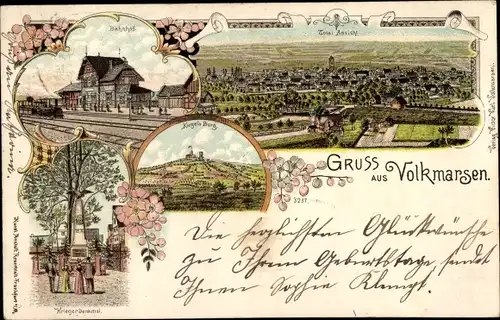 Bahnhof.
Total Ansicht
Kugels Burg.
GRUSS
AUS Volkmarsen.
3237.
Die herzlichsten Glückwünsche
zu Ihrem Geburtstage sendet
Ihnen Sophie Klempt.
Krieger Denkmal.